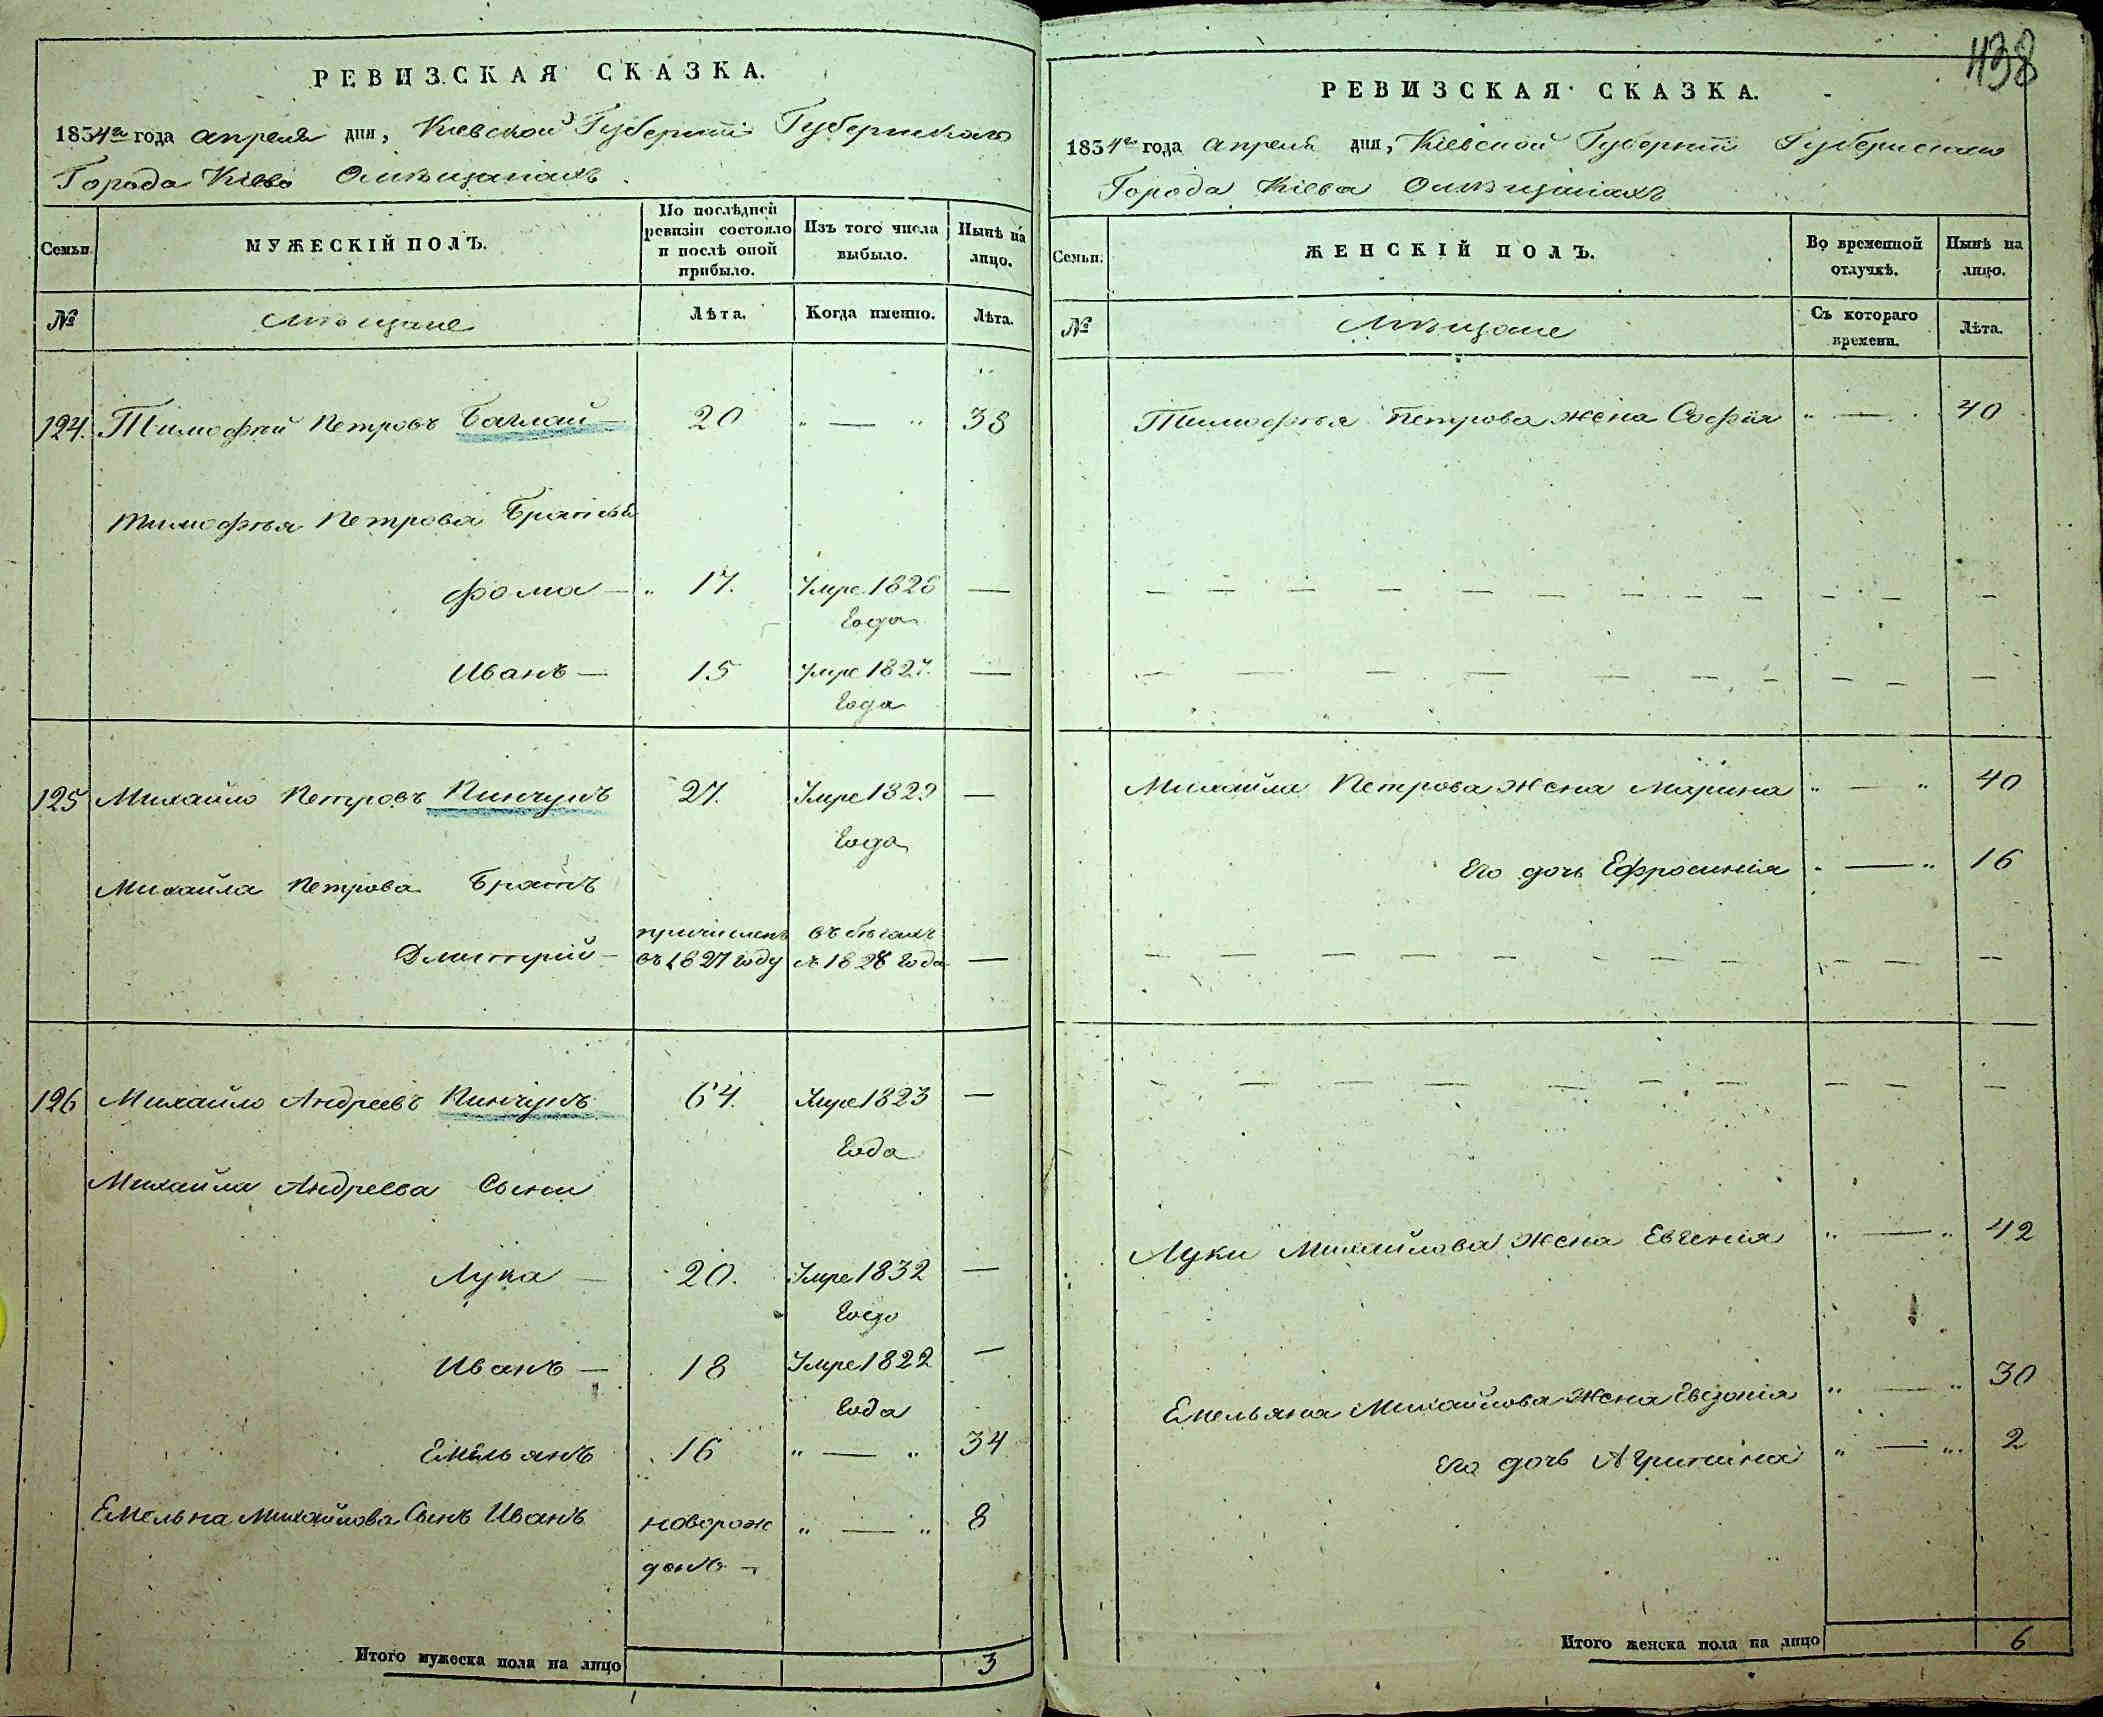 РЕВИЗСКАЯ СКАЗКА.
1834го года апреля дня, Кіевской Губерніи Губернскаго
Города Кіева О мѣщанахъ
Семьи. МУЖЕСКІЙ ПОЛЪ. По послѣдней ревизіи состояло и послѣ оной прибыло. Изъ того числа выбыло. Нынѣ на лицо.
№ Мѣщане Лѣта. Когда именно. Лѣта.
124. Тимофей Петровъ Баглай 20 " — " 38
Тимофея Петрова Братья
Фома — " 17. Умре 1826 —
Года
Иванъ — 15 Умре 1827. —
Года
125 Михайло Петровъ Кинчукъ 27. Умре 1829 —
Года
Михайла Петрова Братъ
причисленъ въ бегахъ
Дмитрій — въ 1827 году съ 1828 Года —
126 Михайло Андреевъ Кинчукъ 64. Умре 1823 —
Года
Михайла Андреева Сыны
Лука — 20. Умре 1832 —
Года
Иванъ — 18 Умре 1822 —
Года
Емельянъ 16 " — " 34
Емельяна Михайлова Сынъ Иванъ новорож " — " 8
денъ —
Итого мужеска пола на лицо 3
438
РЕВИЗСКАЯ СКАЗКА.
1834го года апреля дня, Кіевской Губерніи Губернскаго
Города Кіева О мѣщанахъ
Семьи. ЖЕНСКІЙ ПОЛЪ. Во временной отлучкѣ. Нынѣ на лицо.
№ Мѣщане Съ котораго времени. Лѣта.
Тимофея Петрова жена Софія " — " 40
Михайла Петрова жена Марина " — " 40
Его дочь Ефросинія " — " 16
Луки Михайлова жена Евгенія " — " 42
Емельяна Михайлова жена Евдокія " — " 30
Его дочь Агрипина " — " 2
Итого женска пола на лицо 6